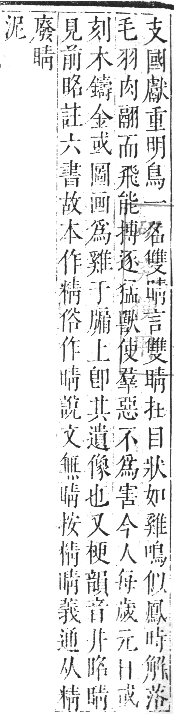 支國獻重明鳥一名雙睛言雙睛在目狀如雞鳴似鳳時解落
毛羽肉翮而飛能搏逐猛獸使羣惡不爲害今人每歲元日或
刻木鑄金或圖画爲雞于牖上卽其遺像也又梗韻音井眳睛
見前眳註六書故本作精俗作睛說文無睛按精睛義通从精
廢睛
泥